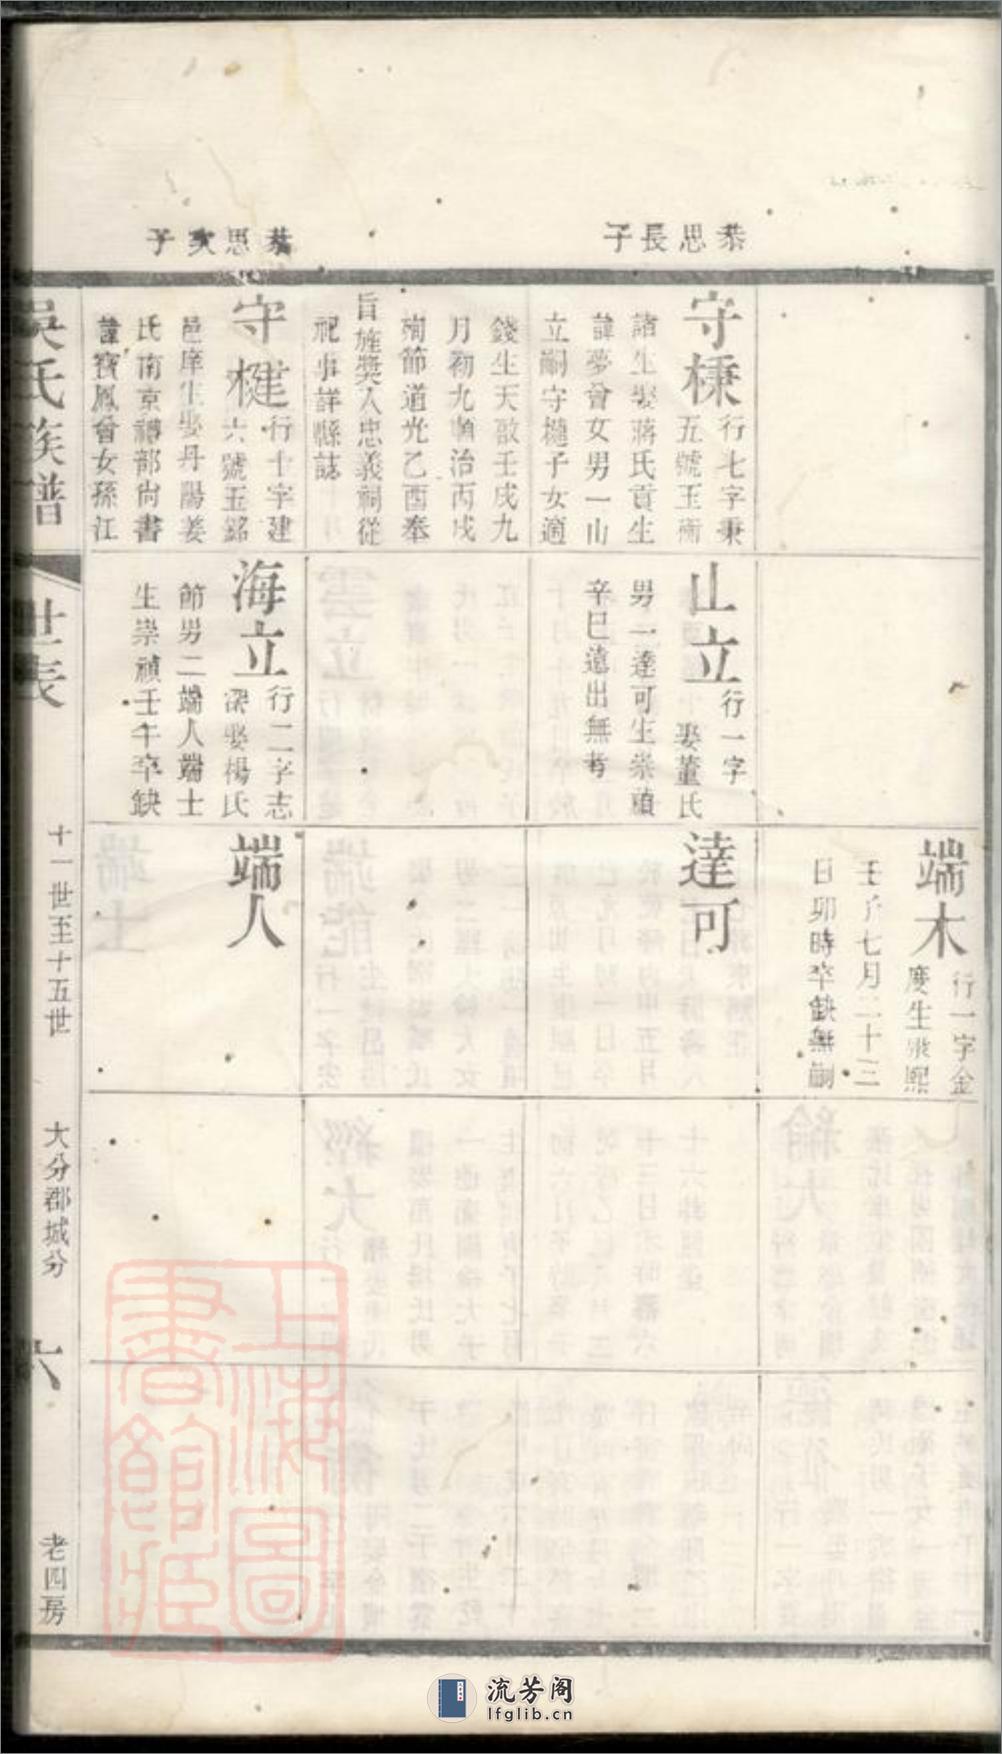 恭思長子
恭思次子
守㯖
行七字秉
五號玉衡
諸生娶蔣氏貢生
諱夢曾女男一山
立嗣守樾子女適
錢生天啟壬戌九
月初九順治丙戌
殉節道光乙酉奉
旨旌獎入忠義祠從
祀事詳縣誌
守楗
行十字建
六號玉銘
邑庠生娶丹陽姜
氏南京禮部尚書
諱寶鳳曾女孫江
山立
行一字
娶董氏
男一達可生崇禎
辛巳遠出無考
海立
行二字志
深娶楊氏
節男二端人端士
生崇禎壬午卒缺
端木
行一字金
度生康熙
壬子七月二十三
日卯時卒缺無嗣
達可
端人
吳氏族譜
世表
十一世至十五世
大分郡城分
六
老四房
上海圖書館藏
流芳阁
lfglib.cn